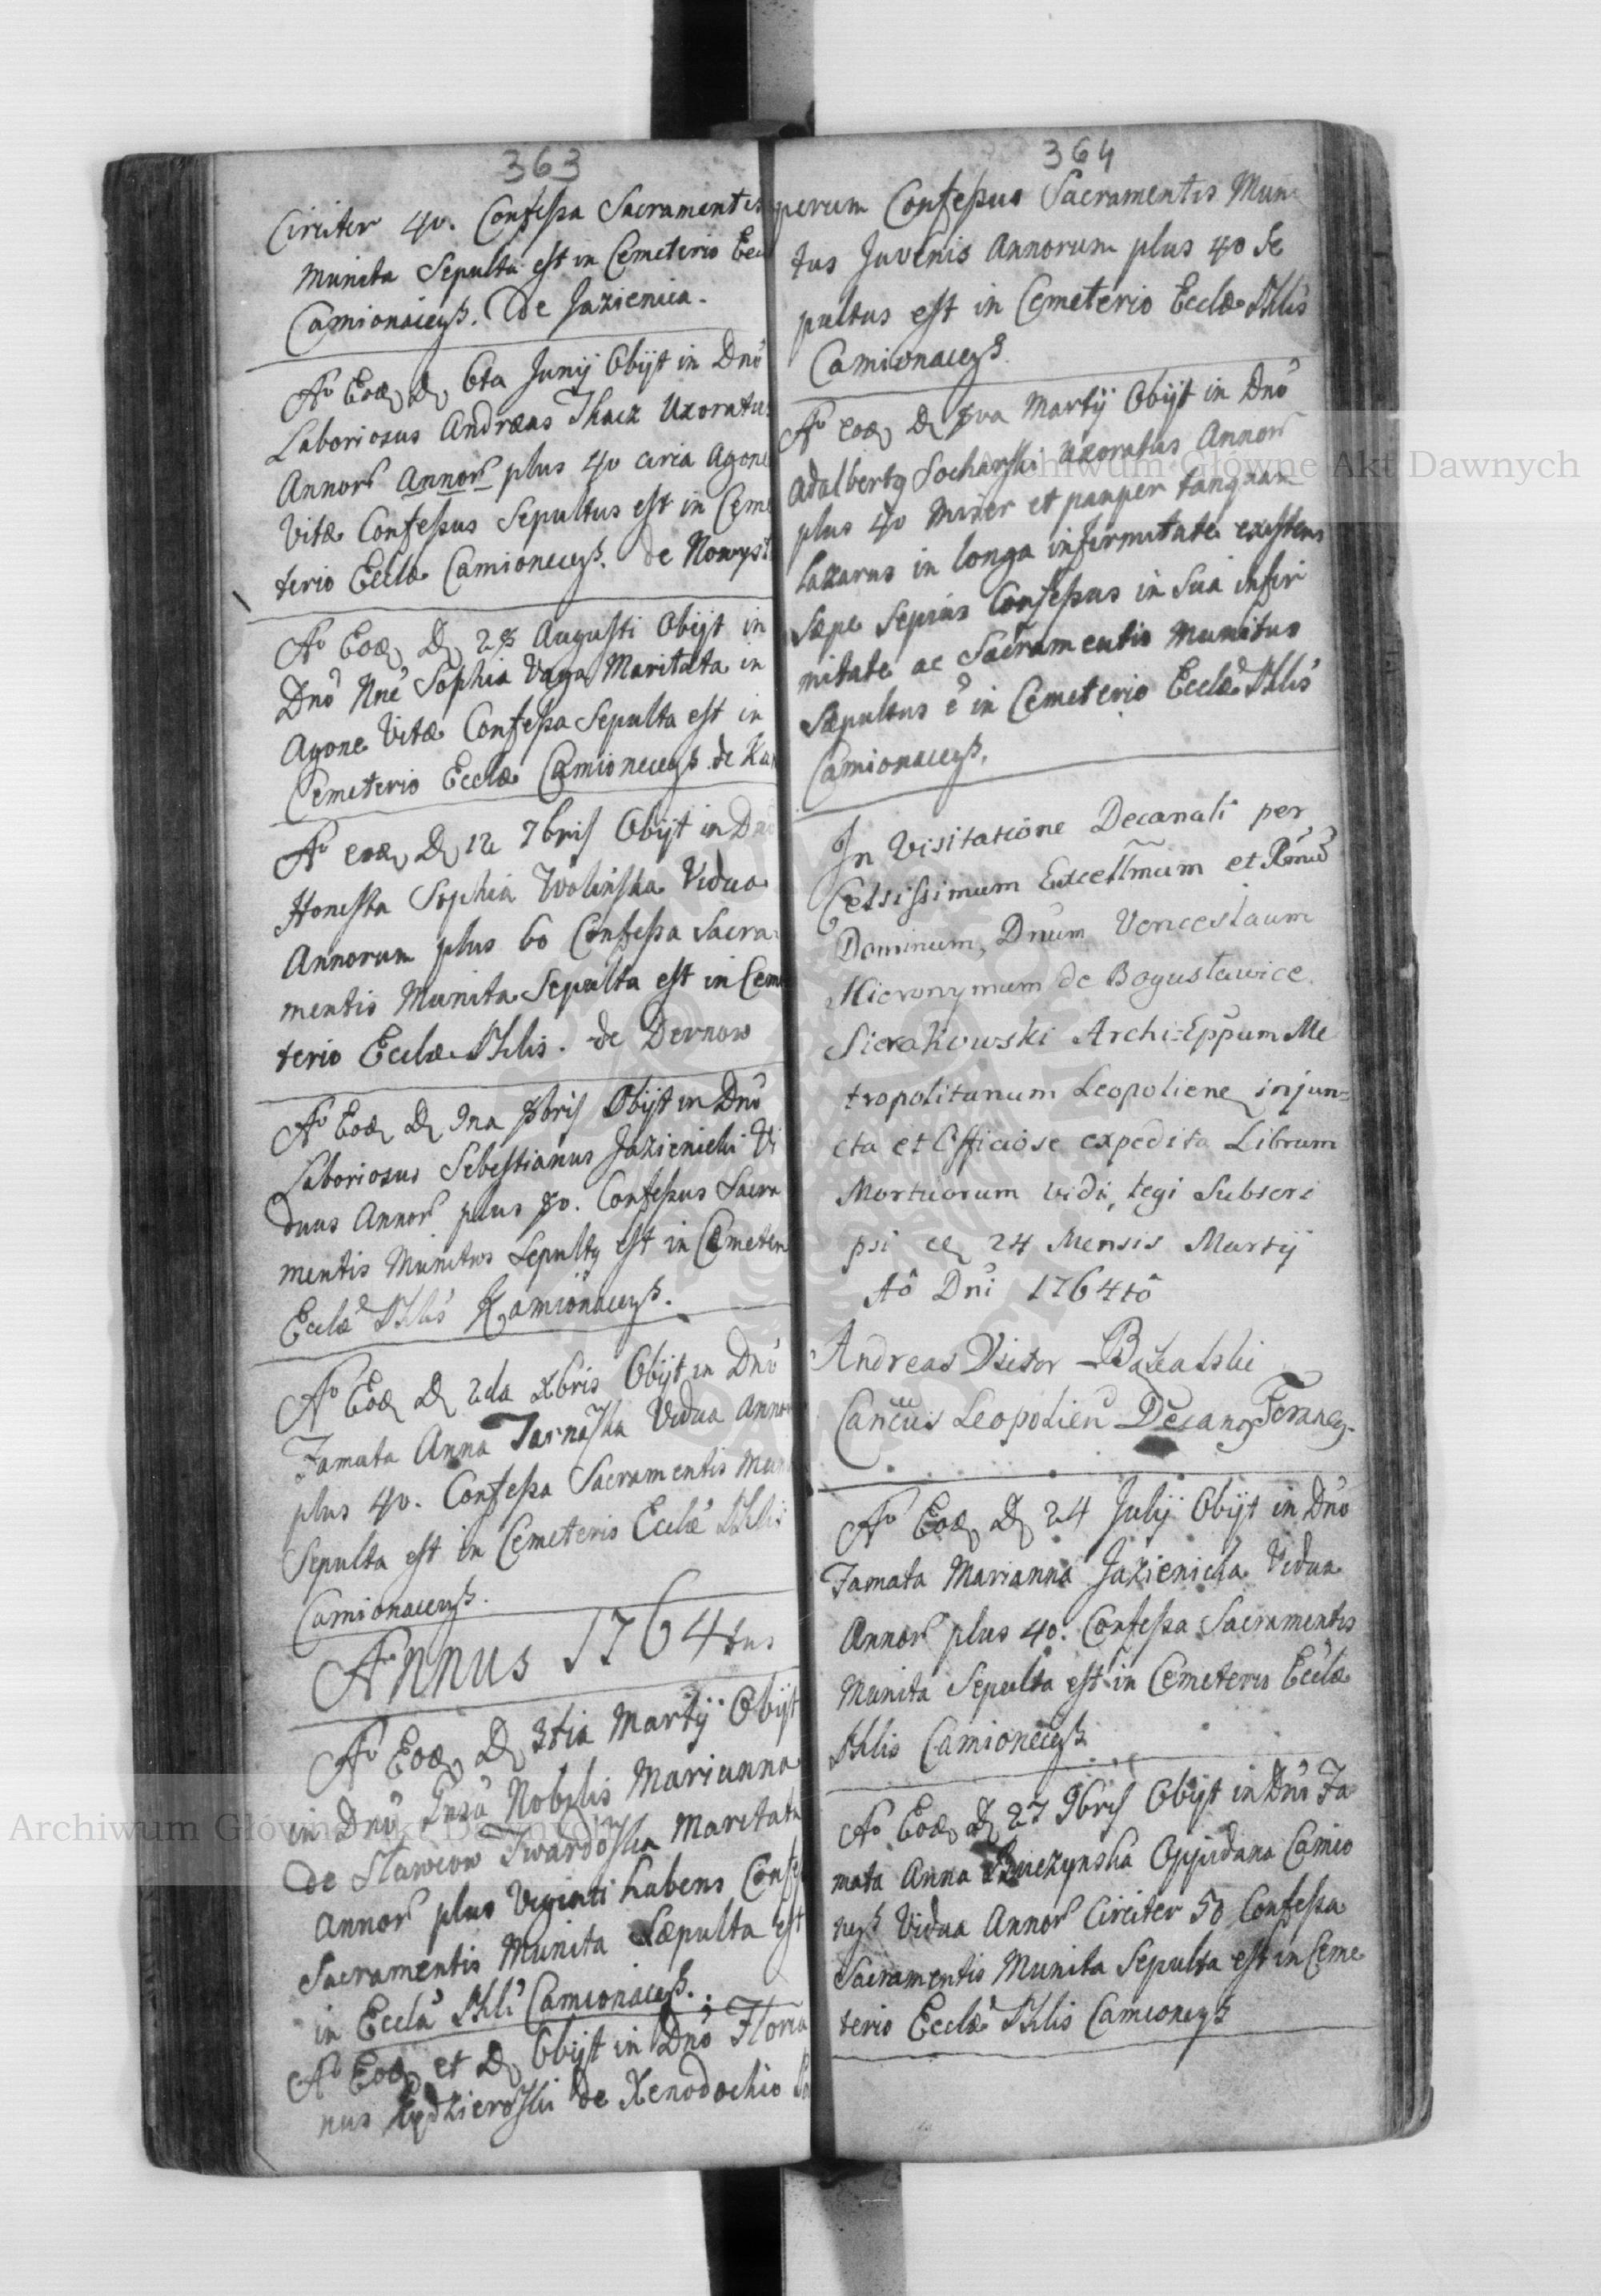 363
Circiter 40. Confessa Sacramentis
Munita Sepulta est in Cemeterio Eccl
Camionacens. de Jazienica.
Ao Eod D 6ta Junij Obijt in Dnō
Laboriosus Andræas Tkacz Uxoratus
Annorũ Annorũ plus 40 circa Agone
Vitæ Confessus Sepultus est in Ceme
terio Eccłæ Camionecens. de Nowyst
Ao Eod D 28 Augusti Obijt in
Dnō Sophia Vaga Maritata in
Agone Vitæ Confessa Sepulta est in
Cemeterio Eccłæ Camionecens. de
Ao eod D 12 7bris Obijt in Dnō
Honesta Sophia Wolinska Vidua
Annorum plus 60 Confessa Sacra
mentis Munita Sepulta est in Ceme
terio Eccłæ Phlis. de Dernow
Ao Eod D 9na 8bris Obijt in Dnō
Laboriosus Sebestianus Jazienicki Vi
duus Annorũ plus 80. Confessus Sacra
mentis Munitus Sepultq est in Cæmeter
Eccłæ Phlis Kamionacens.
Ao Eod D 2da Xbris Obijt in Dnō
Famata Anna Tarnaska Vidua Annor
plus 40. Confessa Sacramentis Muni
Sepulta est in Cemeterio Eccłæ Phlis
Camionacens.
Annus 1764tus
Ao Eod D 3tia Martij Obijt
in Dnō Nobilis Marianna
de Stawcow Twardoska Maritata
Annorũ plus Viginti habens Confess
Sacramentis Munita Sæpulta est
in Eccła Phli Camionacens.
Ao Eod et D Obijt in Dnō Floria
nus de Xenodochio
364
perum Confessus Sacramentis Muni
tus Juvenis Annorum plus 40 Se
pultus est in Cemeterio Eccłæ Phlis
Camionacens
Ao eod D 8va Martij Obijt in Dnō
Adalbertq Socharski Uxoratus Annorũ
plus 40 Miser et pauper tanquam
Lazarus in longa infirmitate existens
Sæpe Sepius Confessus in Sua infir
mitate ac Sacramentis Munitus
Sæpultus ē in Cemeterio Eccłæ Phlis
Camionacens.
In Visitatione Decanali per
Celsissimum Excellm̃um et Rm̃ũ
Dominum, Dnũm Venceslaum
Hieronymum de Bogusławice
Sierakowski Archi-Eppum Me
tropolitanum Leopoliene injun=
cta et Officiose expedita Librum
Mortuorum vidi, legi Subscri
psi 24 Mensis Martij
Aō Dni 1764tō
Andreas Victor
Leopolien Decanq
Ao Eod D 24 Julij Obijt in Dnō
Famata Marianna Jazienicka Vidua
Annorũ plus 40. Confessa Sacramentis
Munita Sepulta est in Cemeterio Eccłæ
Phlis Camionecens
Ao Eod D 27 9bris Obijt in Dnō Fa
mata Anna Oppidana Camio
nens Vidua Annorũ Circiter 50 Confessa
Sacramentis Munita Sepulta est in Ceme
terio Eccłæ Phlis Camionens
Archiwum Główne Akt Dawnych
Archiwum Główne Akt Dawnych